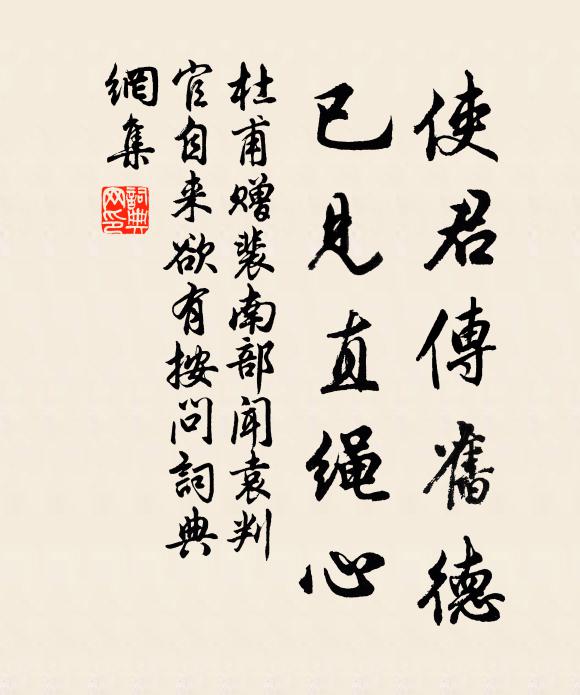 使君傳舊德
已見直绳心
杜甫赠裴南部聞袁判
官自来欲有按問詞典
網集
詞典
网印